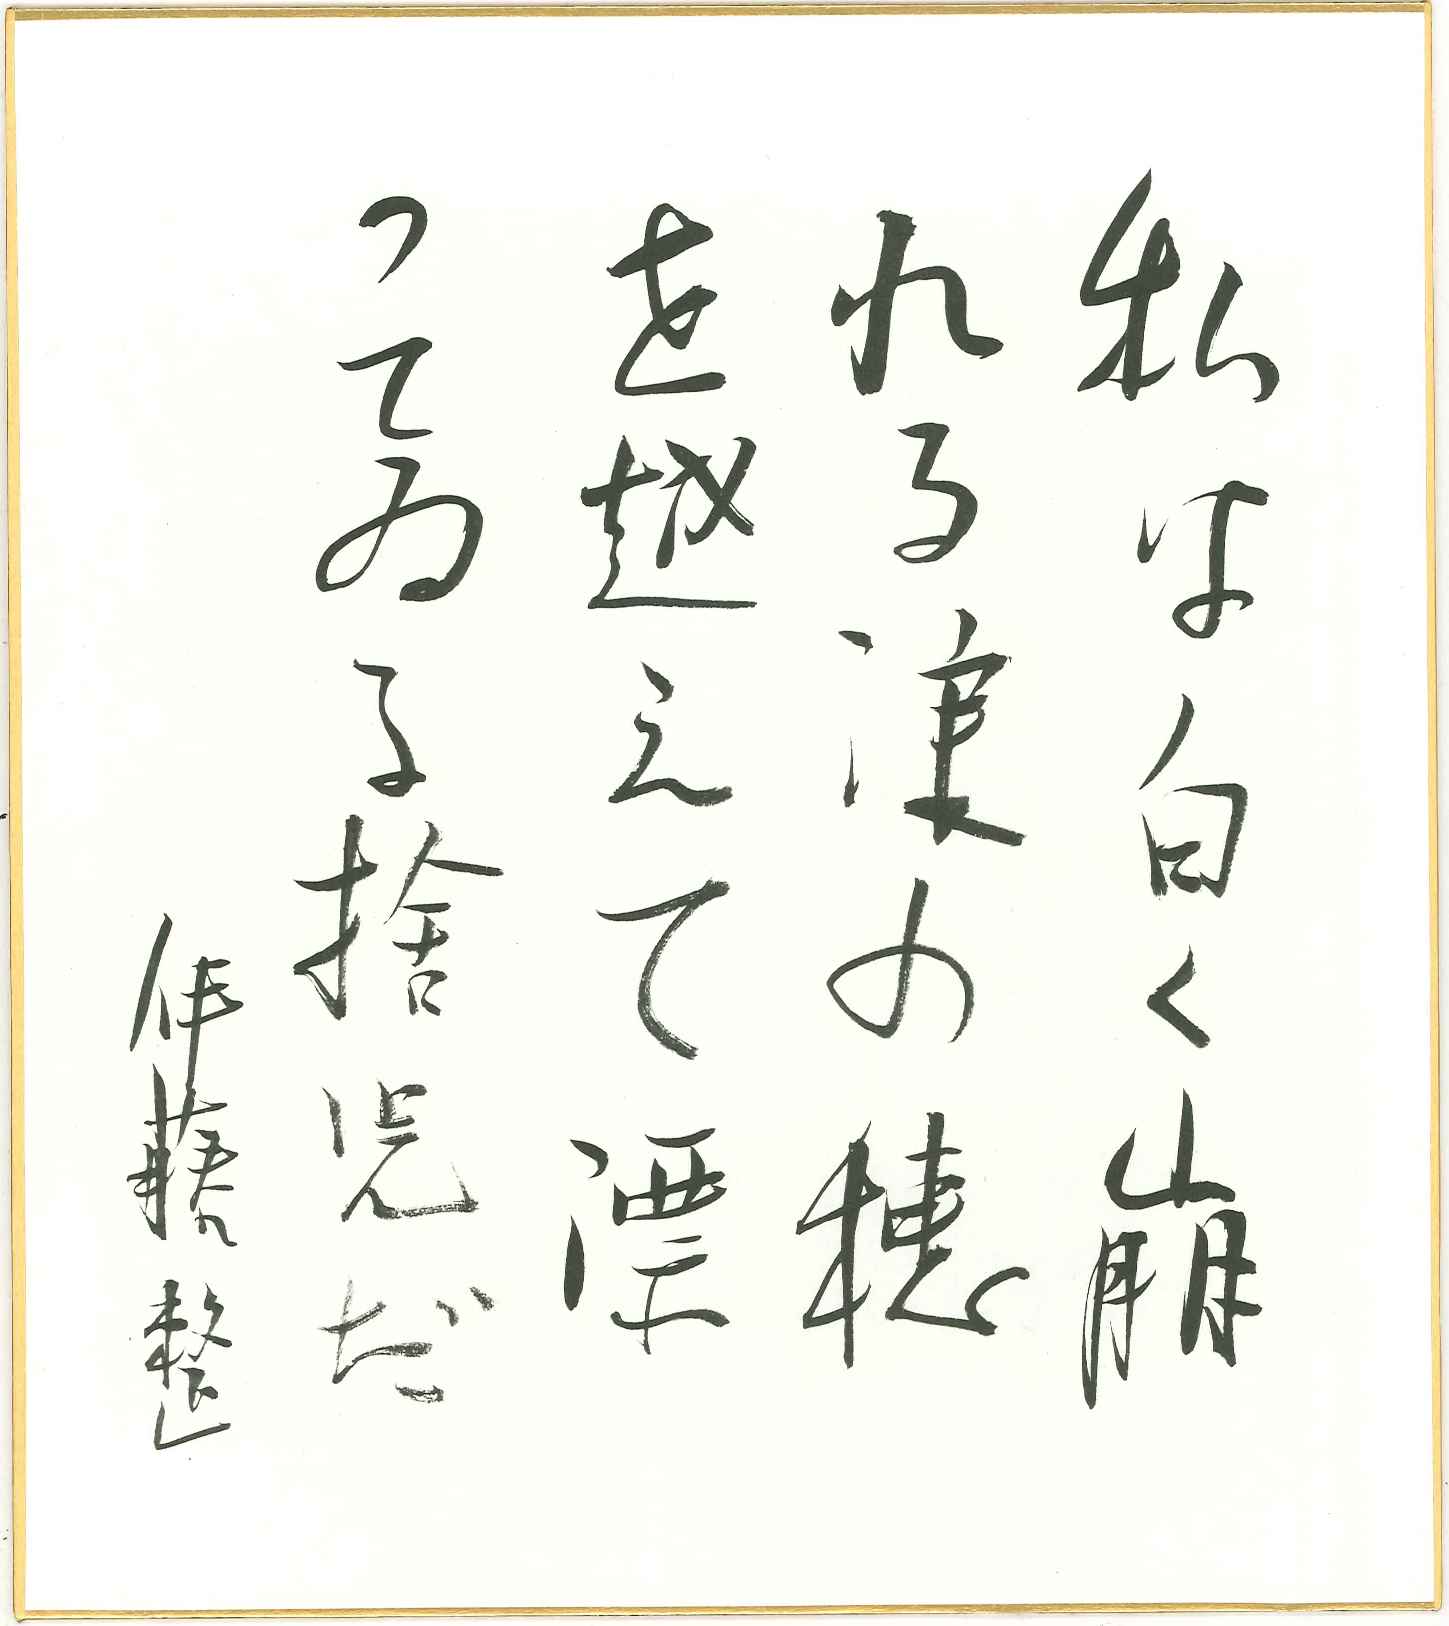 私は白く崩
れる浪の穂
を越えて漂
つてゐる捨児だ
伊藤整